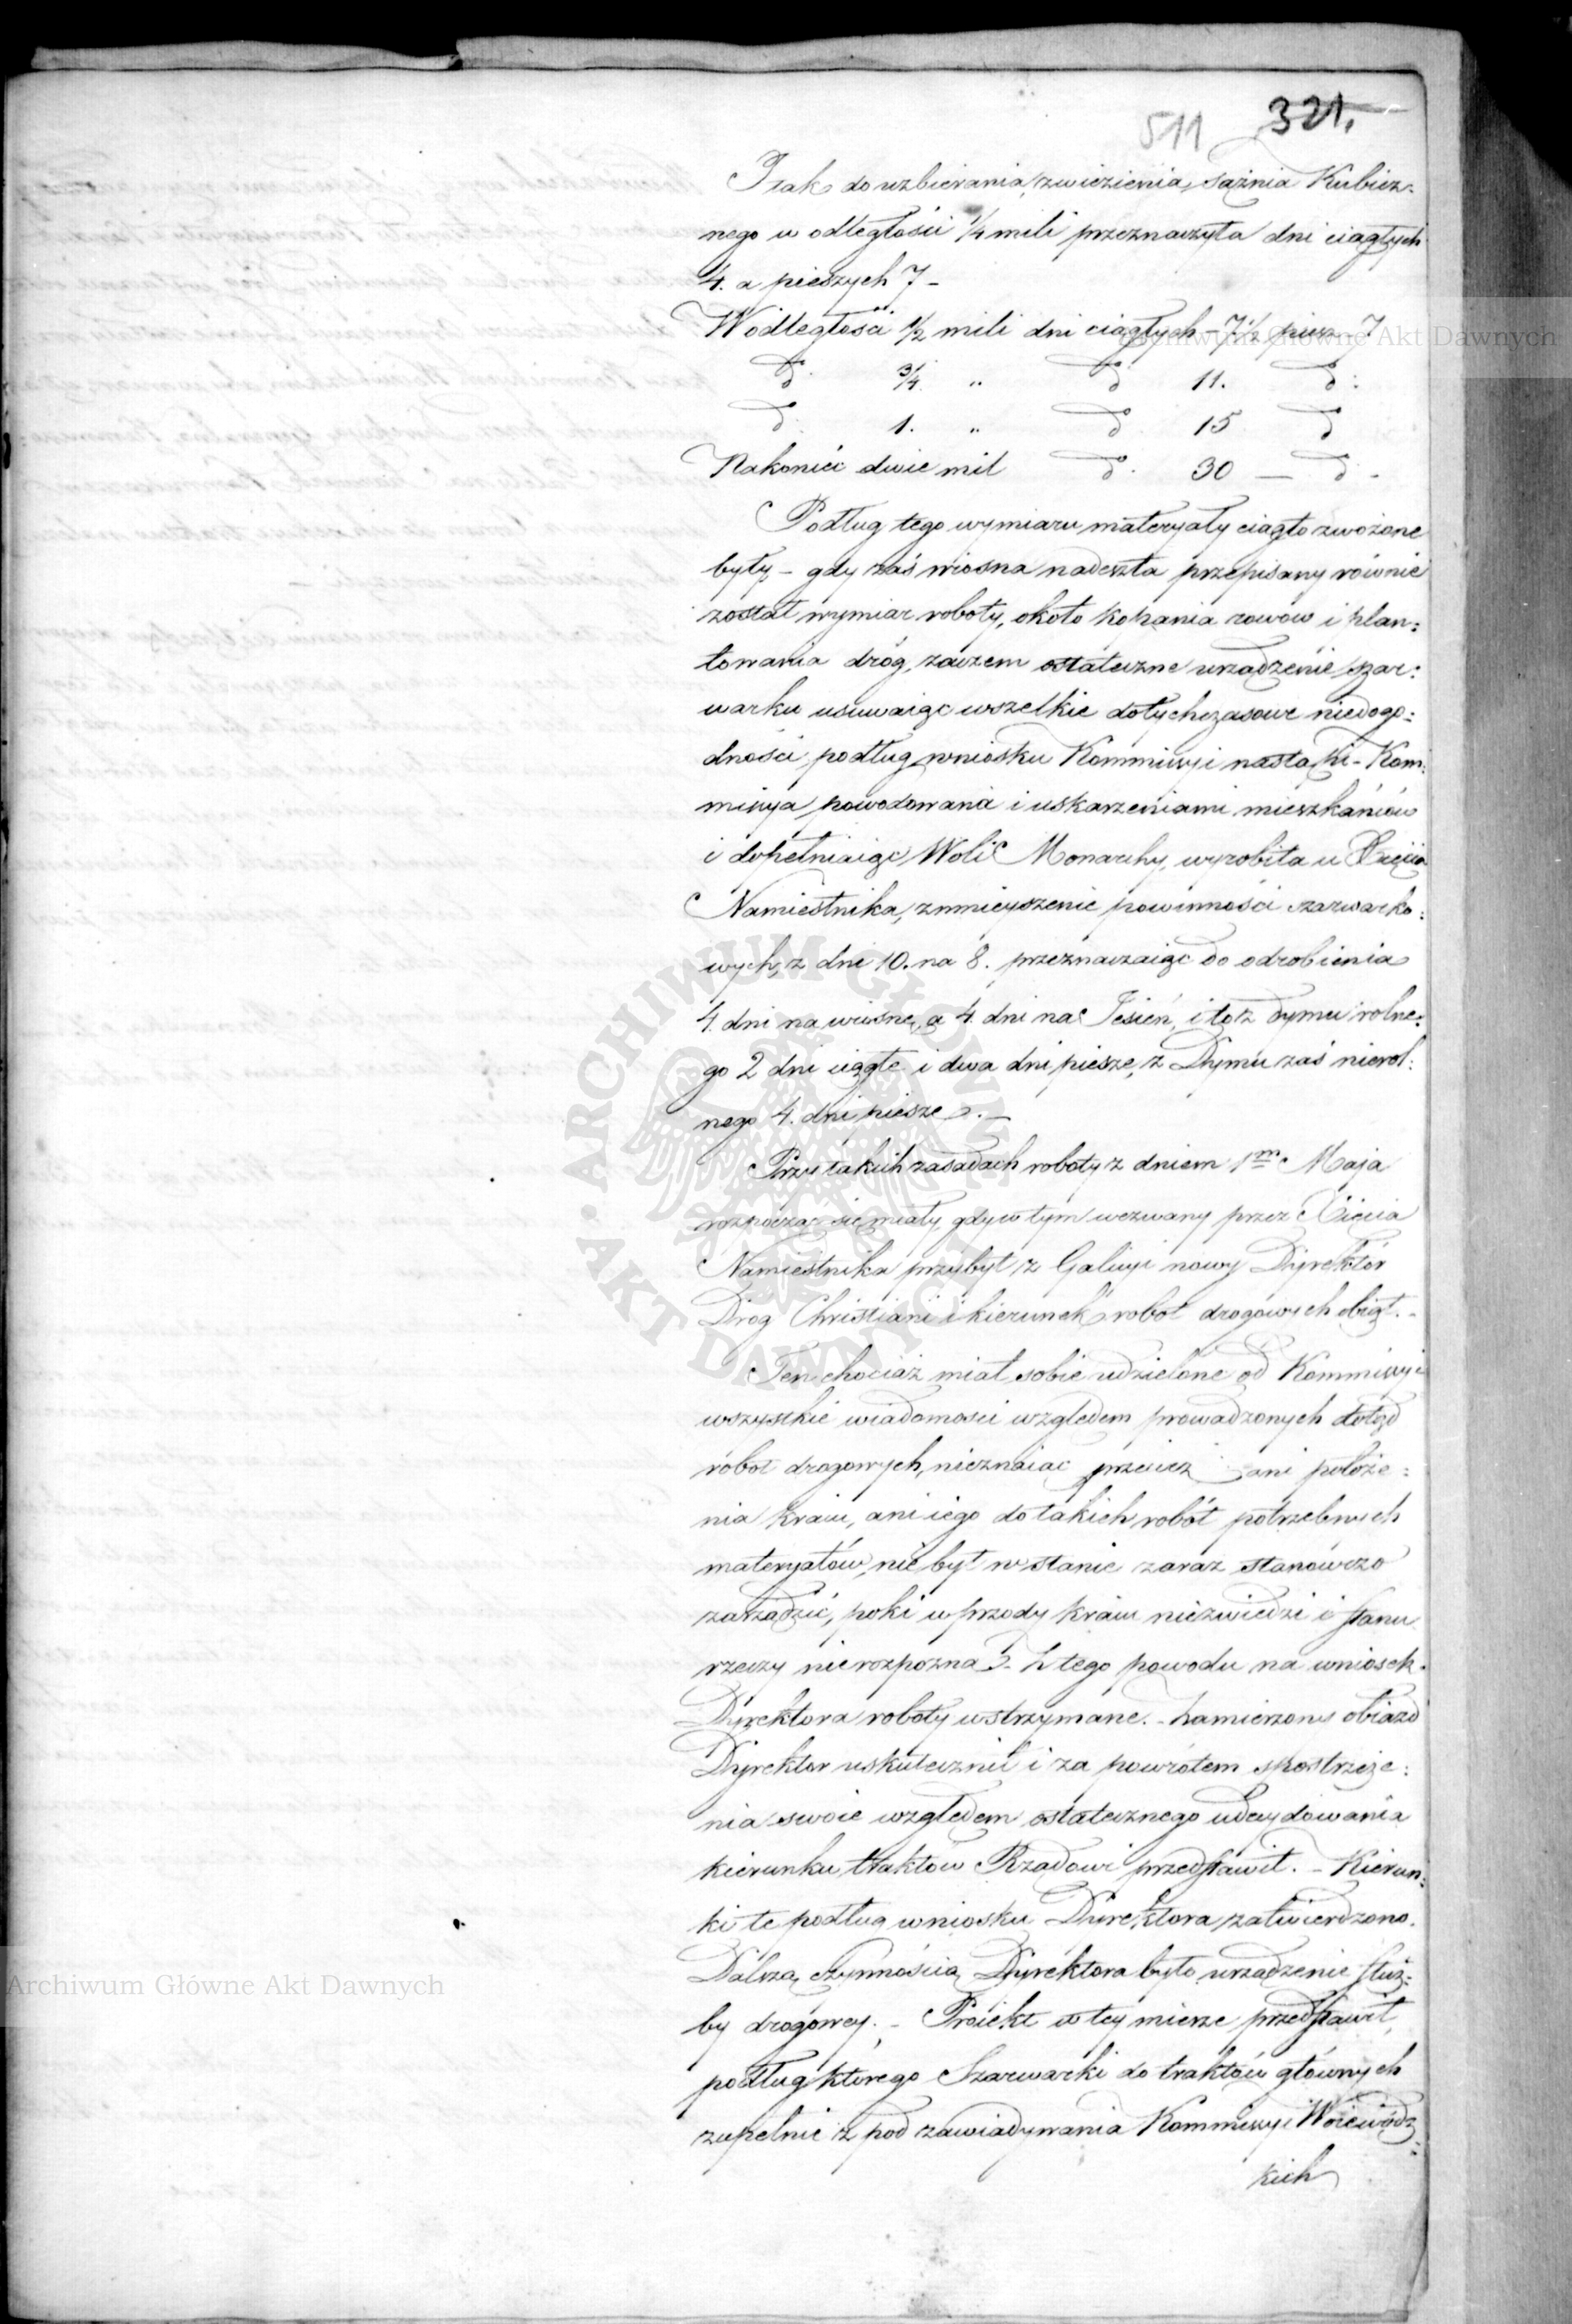 511 321.
I tak do uzbierania, zwiezienia, sążnia Kubicz:
nego w odległości 1/4 mili przeznaczyła dni ciągłych
4. a pieszych 7 –
W odległości 1/2 mili dni ciągłych – 7 1/2 piesz. 7
d. 3/4 " d. 11. d:
d. 1. " d. 15 d
Nakoniec dwie mil d. 30 — d. –
Podług tego wymiaru materyały ciągło zwożone
były – gdy zaś wiosna nadeszła przepisany równie
został wymiar roboty, około kopania rowów i plan:
towania dróg, zaczem ostateczne urządzenie szar:
warku usuwaiąc wszelkie dotychczasowe niedogo:
dności, podług wniosku Kommissyi nastąpi – Kom:
missya powodowana i uskarzeniami mieszkańców
i dopełniaiąc Woli Monarchy, wyrobiła u Xięcia
Namiestnika, zmnieyszenie powinności szarwarko:
wych, z dni 10. na 8. przeznaczaiąc do odrobienia
4. dni na wiosnę, a 4. dni na Jesień, i to z dymu rolne:
go 2 dni ciągłe i dwa dni piesze, z Dymu zaś nierol:
nego 4. dni piesze. –
Przy takich zasadach roboty z dniem 1m Maja
rozpocząć się miały, gdy w tym wezwany przez Xięcia
Namiestnika przybył z Galicyi nowy Dyrektór
Dróg Christiani i kierunek robot drogowych obiął. –
Ten chociaż miał sobie udzielone od Kommissyi
wszystkie wiadomości względem prowadzonych dotąd
robot drogowych, nieznaiąc przecież ani położe:
nia kraiu, ani iego do takich robót potrzebnych
materyałów, nie był w stanie zaraz stanowczo
zarządzić, poki wprzody kraiu niezwiedzi i stanu
rzeczy nierozpozna – Z tego powodu na wniosek
Dyrektora roboty wstrzymane. – Zamierzony obiazd
Dyrektor uskutecznił i za powrotem spostrzeże:
nia swoie względem ostatecznego udecydowania
kierunku traktów Rządowi przedstawił. – Kierun:
ki te podług wniosku Dyrektora zatwierdzono.
Dalszą czynnością Dyrektora było urządzenie służ:
by drogowey. – Proiekt w tey mierze przedstawił,
podług którego Szarwarki do traktów głównych
zupełnie z pod zawiadywania Kommissyi Woiewódz:
kich
Archiwum Główne Akt Dawnych
Archiwum Główne Akt Dawnych
ARCHIWUM GŁÓWNE • AKT DAWNYCH •